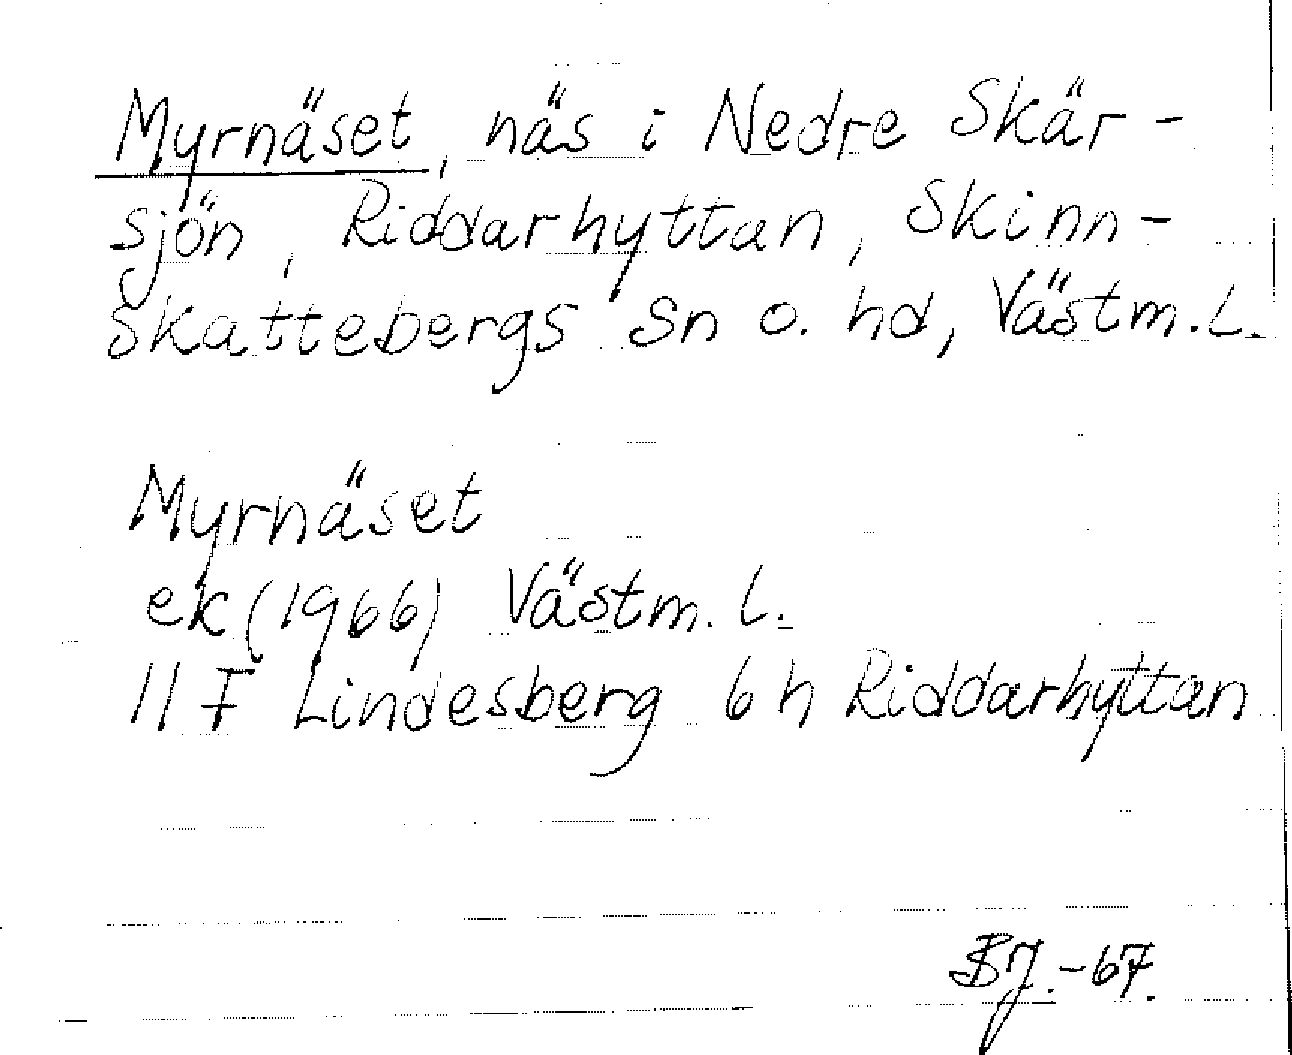 Myrnäset, näs i Nedre Skär-
sjön, Riddarhyttan, Skinn-
skattebergs sn o. hd, Västm. l.
Myrnäset
ek (1966) Västm. l.
11 F Lindesberg 6 h Riddarhyttan
BJ.-67.